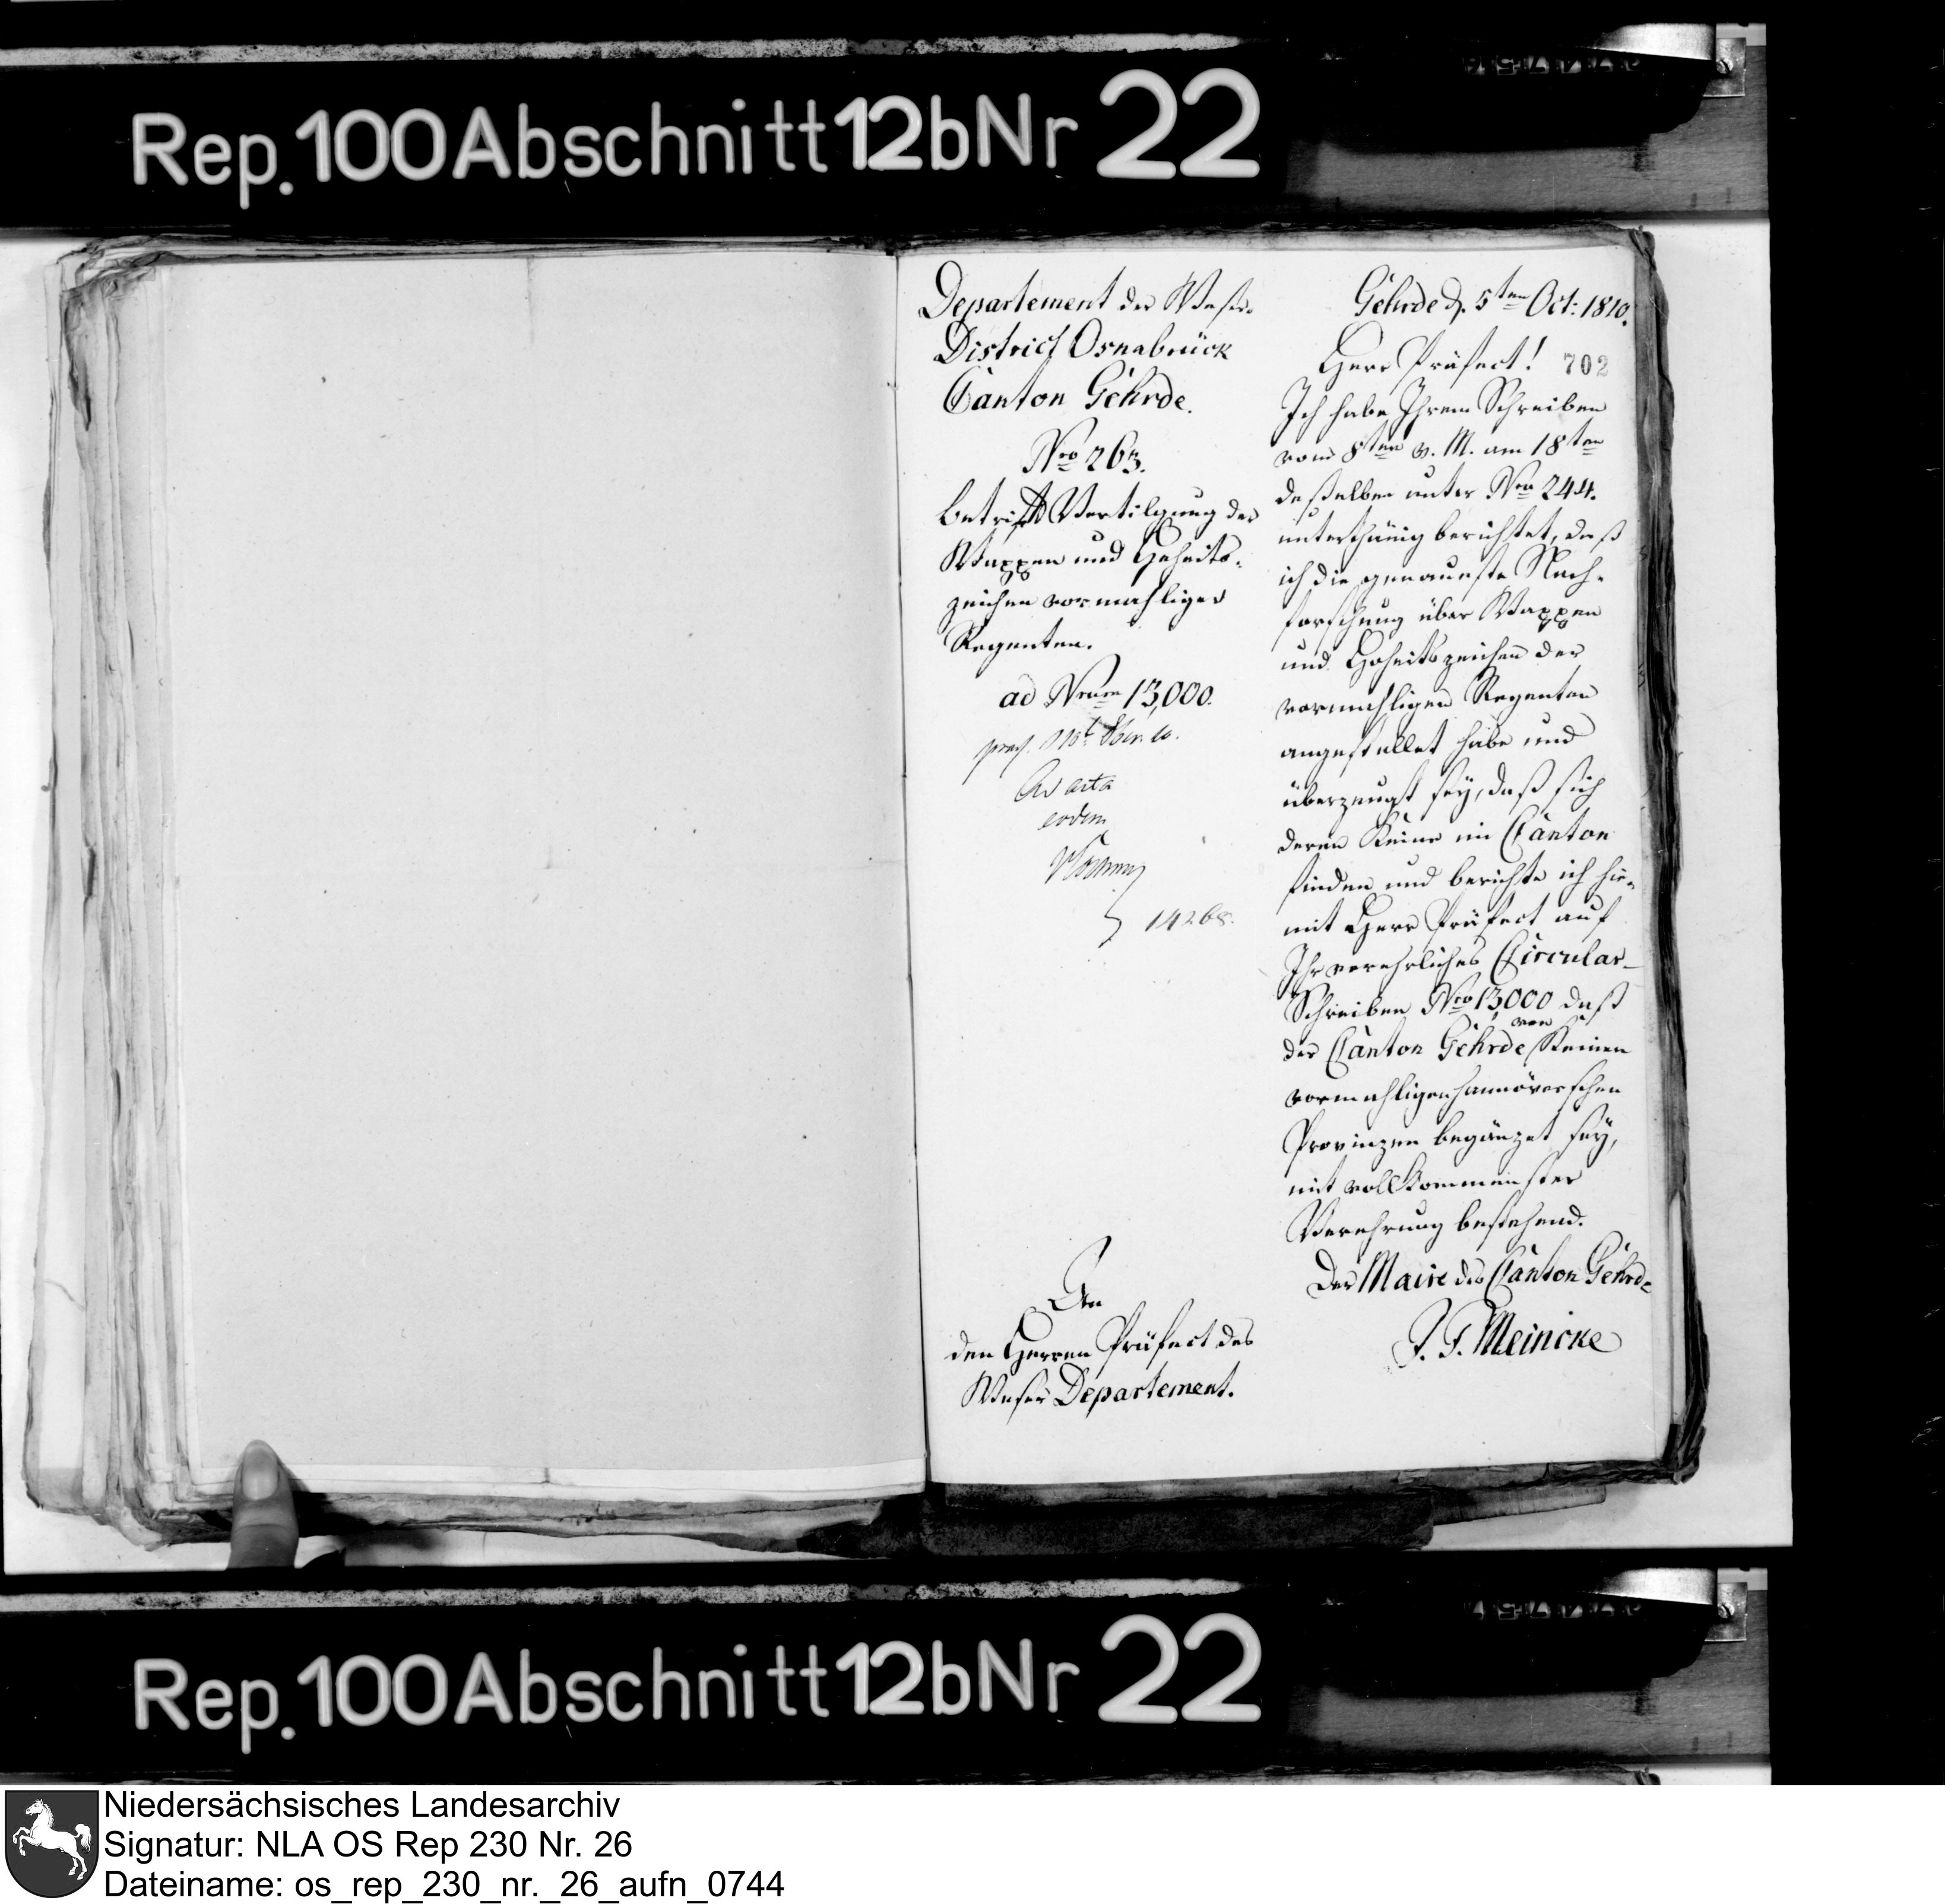 Rep. 100 Abschnitt 12b Nr 22
Departement der Weser.
District Osnabrück
Canton Gehrde.
Nro 263.
betrifft Vertilgung der
Wappen und Hoheits-
zeichen vormahliger
Regenten.
ad Nrum 13,000.
praes.
Ad acta
eodem
14268.
An
den Herren Präfect des
Weser Departement.
Gehrde d. 5ten Oct: 1810.
702
Herr Präfect!
Ich habe Ihrem Schreiben
vom 8ten v. M. am 18ten
deßelben unter Nro 244.
unterthänig berichtet, daß
ich die genaueste Nach-
forschung über Wappen
und Hoheitszeichen der
vormahligen Regenten
angestellet habe und
überzeugt sey, daß sich
deren Keine im Canton
finden und berichte ich hie-
mit Herr Präfect auf
Ihr verehrliches Circular-
Schreiben Nro 13,000 daß
der Canton Gehrde von Keinen
vormahligen hannöverschen
Provinzen begänzet sey,
mit vollkommenster
Verehrung bestehend.
Der Maire des Canton Gehrde
J. F. Meincke
Rep. 100 Abschnitt 12b Nr 22
Niedersächsisches Landesarchiv
Signatur: NLA OS Rep 230 Nr. 26
Dateiname: os_rep_230_nr._26_aufn_0744